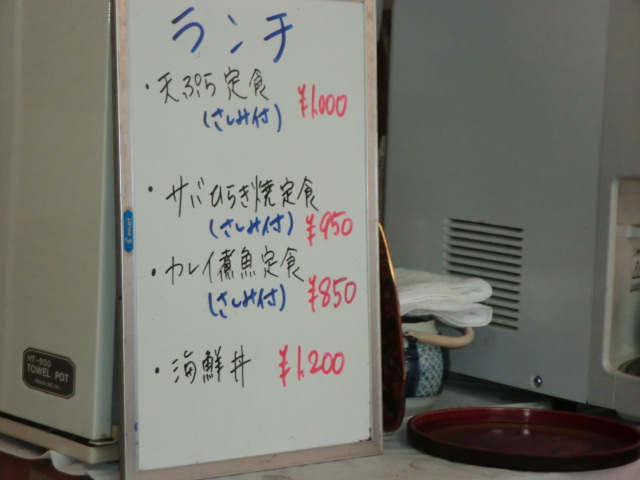 ランチ
・天ぷら定食 ¥1,000
(さしみ付)
・サバひらき焼定食
(さしみ付) ¥950
・カレイ煮魚定食
(さしみ付) ¥850
・海鮮丼 ¥1,200
HT-900
TOWEL POT